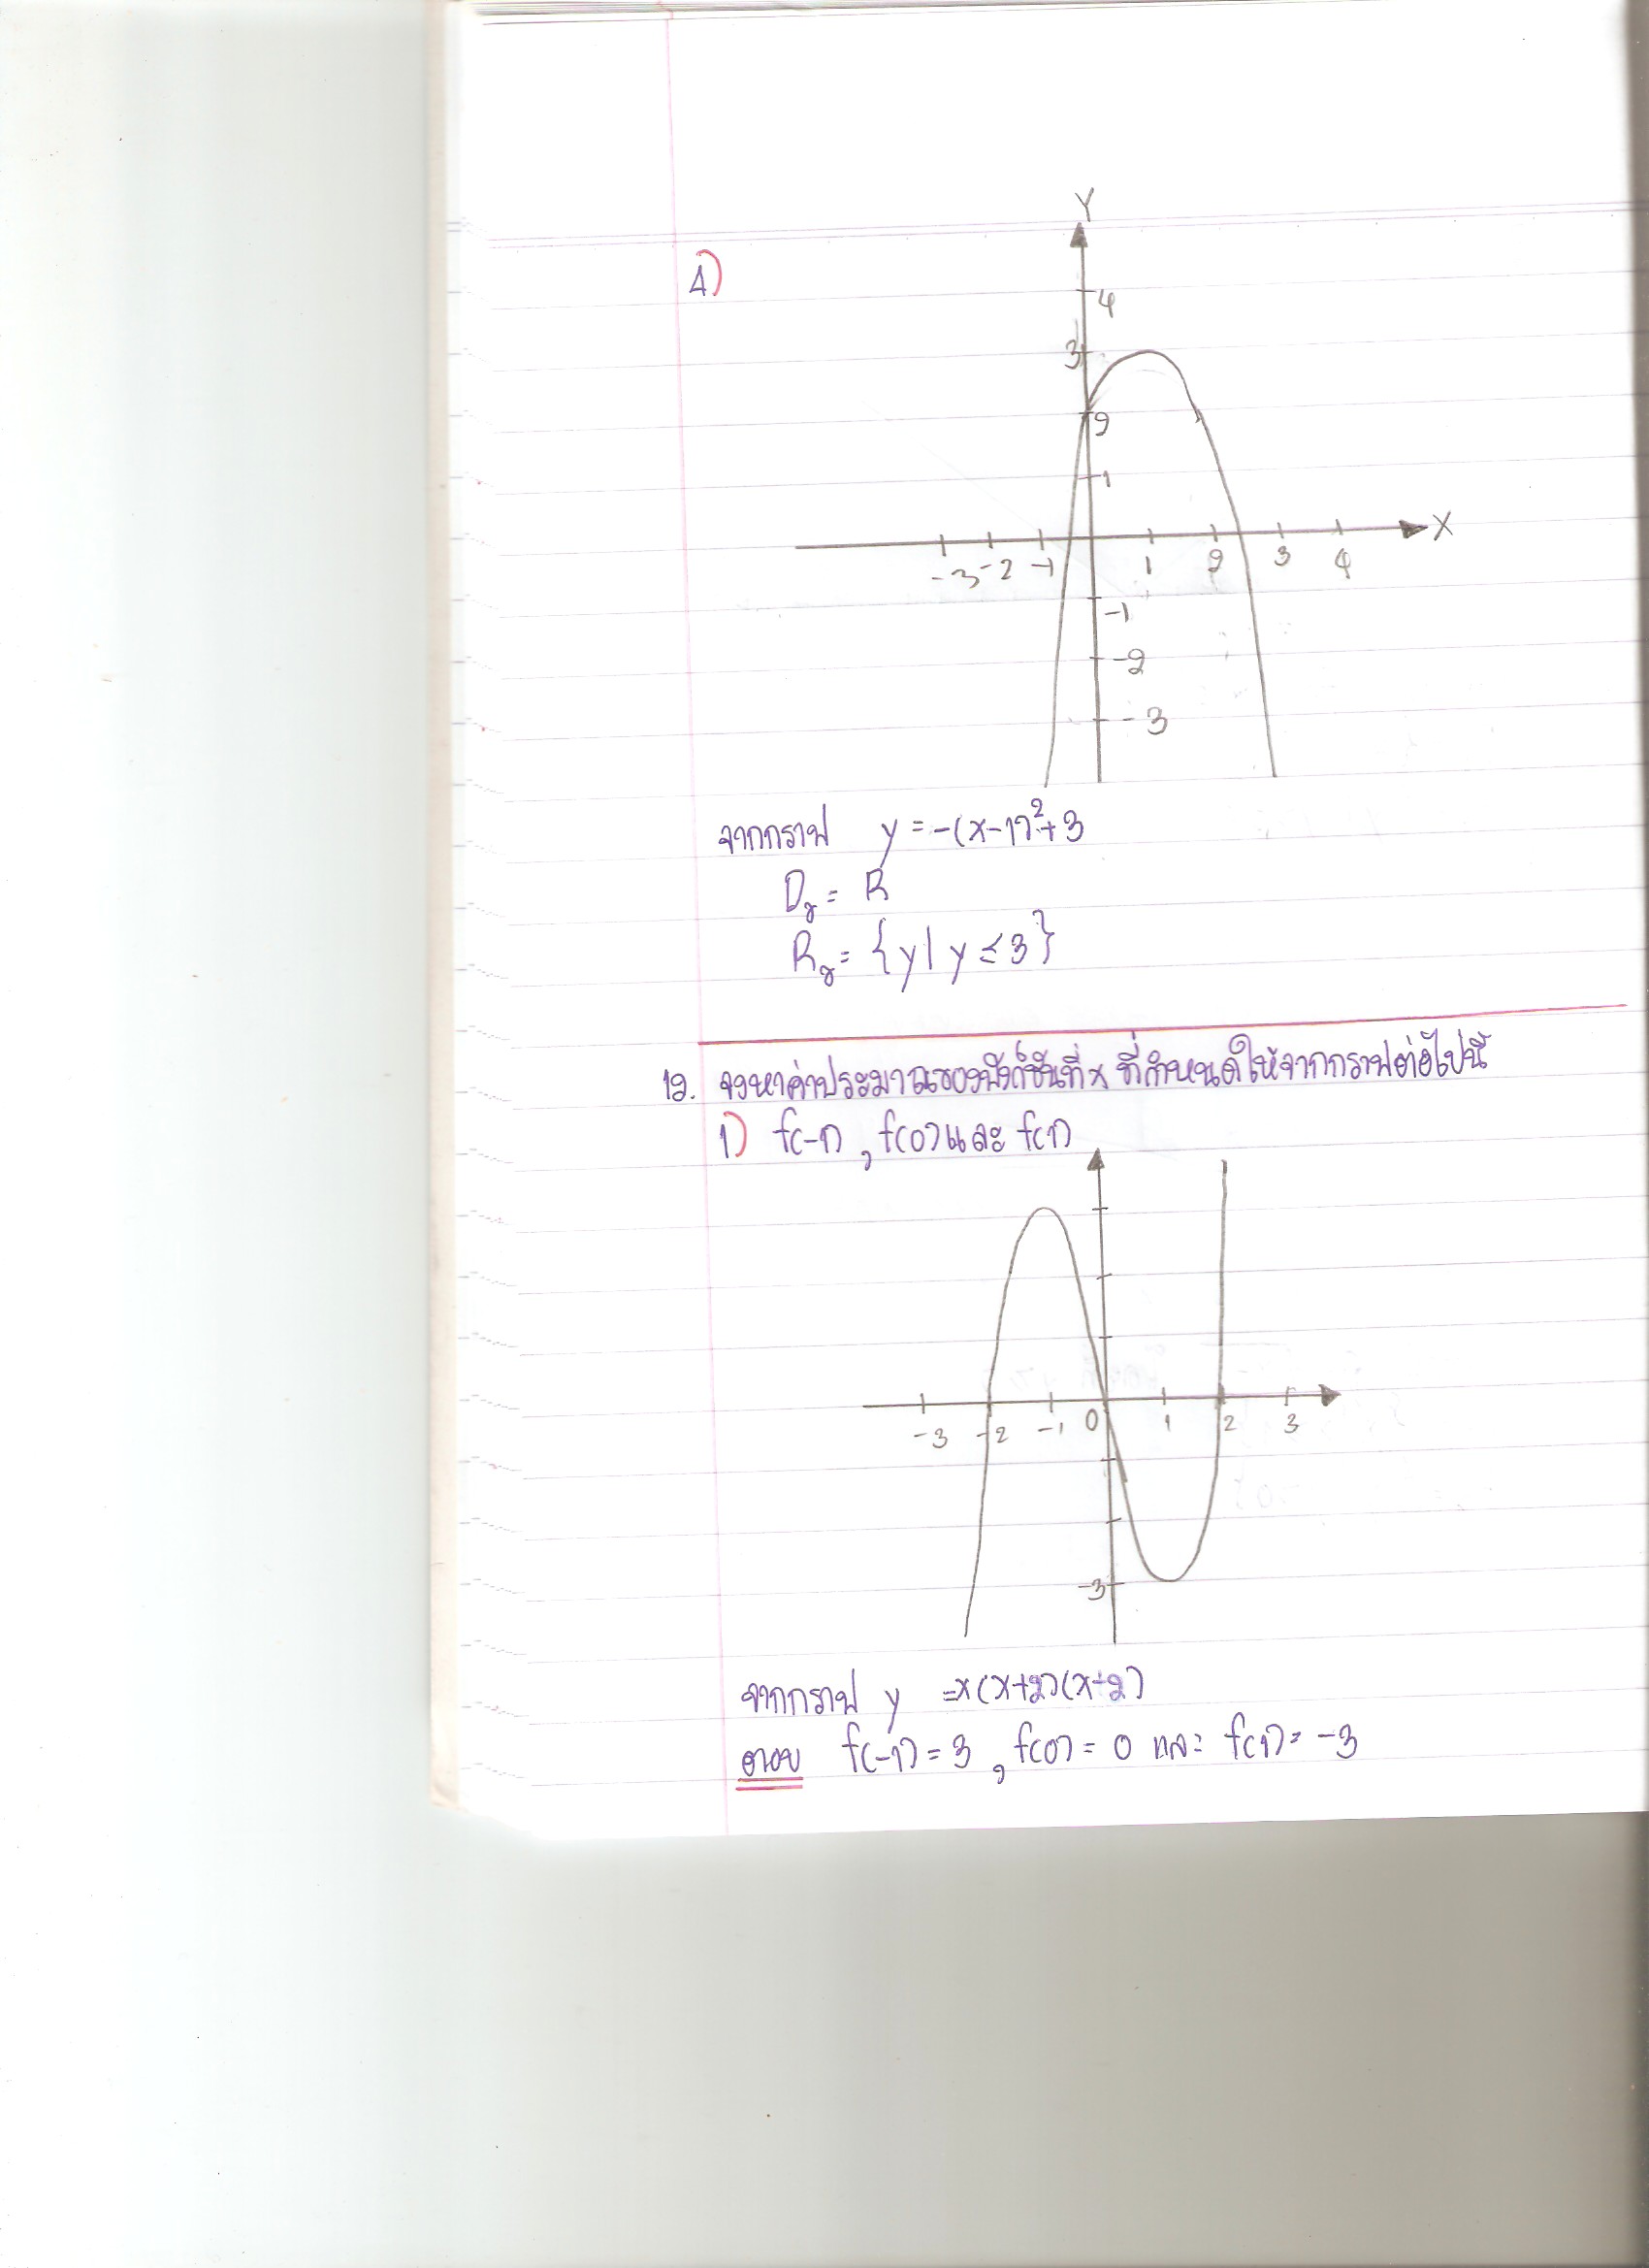 4)
Y
4
3
2
1
-3 -2 -1 1 2 3 4 X
-1
-2
-3
จากกราฟ y = -(x-1)²+3
Dr = R
Rr = {y | y ≤ 3}
12. จงหาค่าประมาณของฟังก์ชันที่ x ที่กำหนดให้จากกราฟต่อไปนี้
1) f(-1), f(0) และ f(1)
-3 -2 -1 0 1 2 3
-3
จากกราฟ y = x(x+2)(x-2)
ตอบ f(-1) = 3, f(0) = 0 และ f(1) = -3